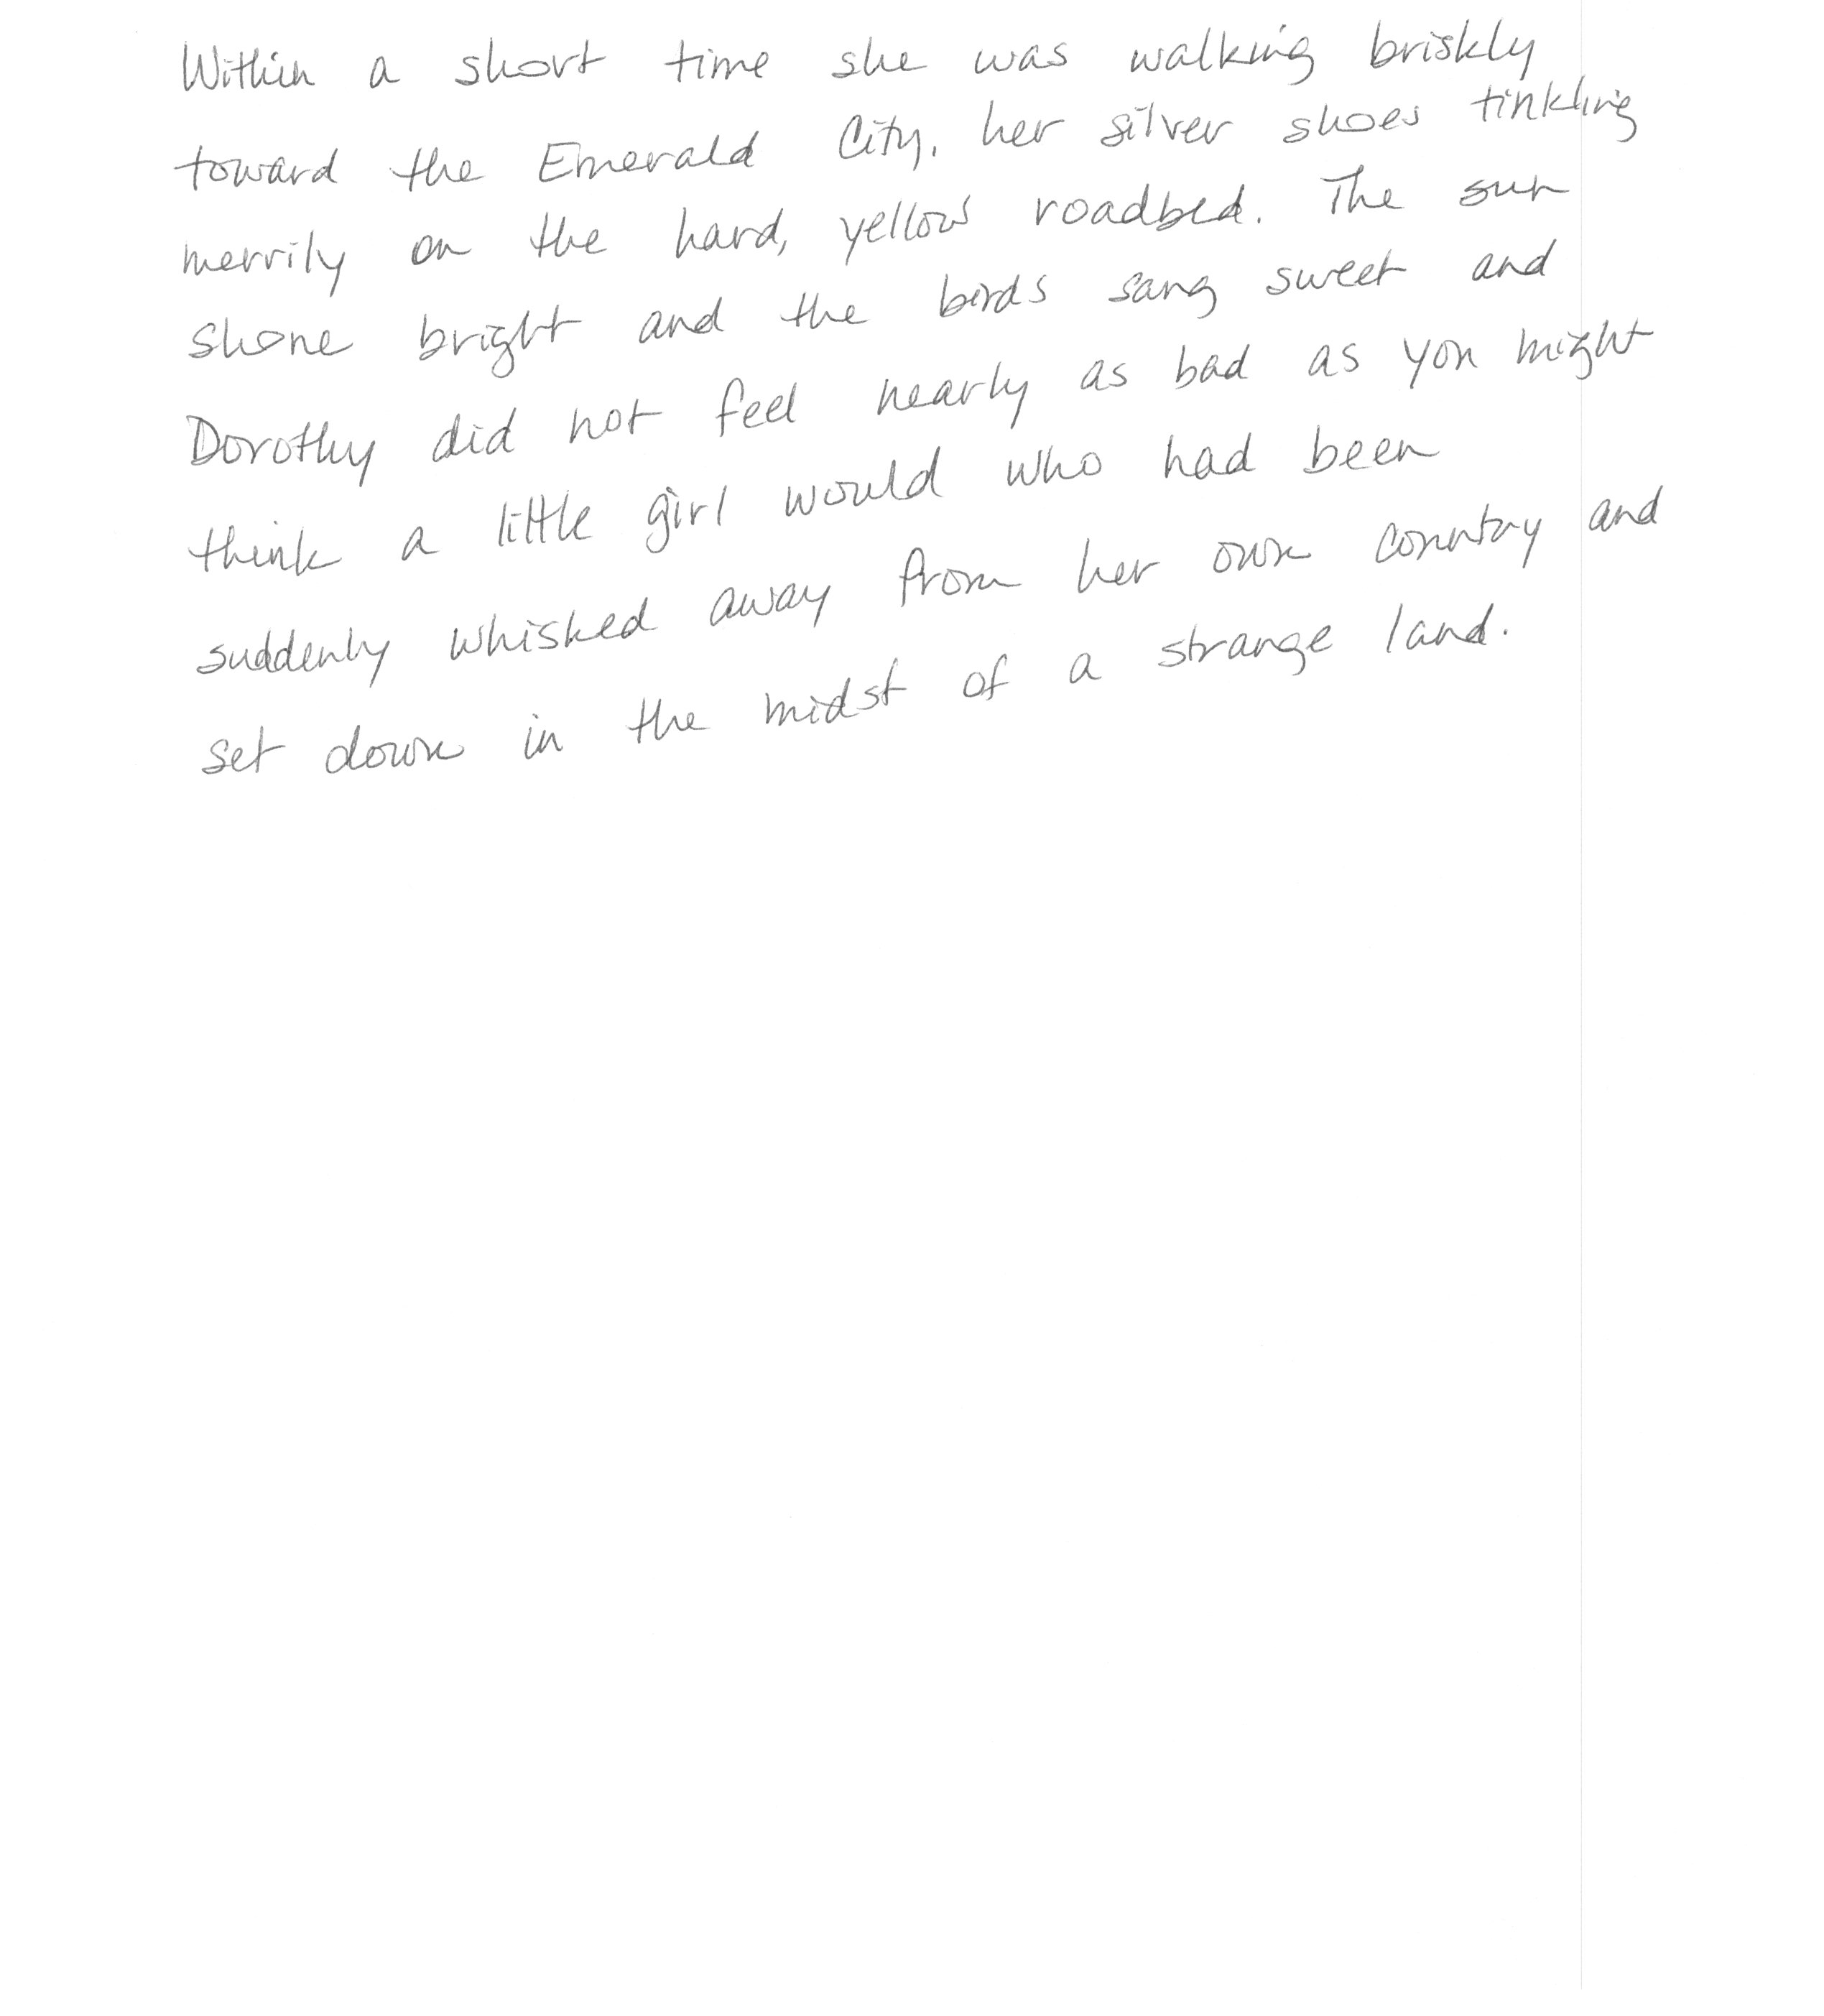 Within a short time she was walking briskly
toward the Emerald City, her silver shoes tinkling
merrily on the hard, yellow roadbed. The sun
shone bright and the birds sang sweet and
Dorothy did not feel nearly as bad as you might
think a little girl would who had been
suddenly whisked away from her own country and
set down in the midst of a strange land.